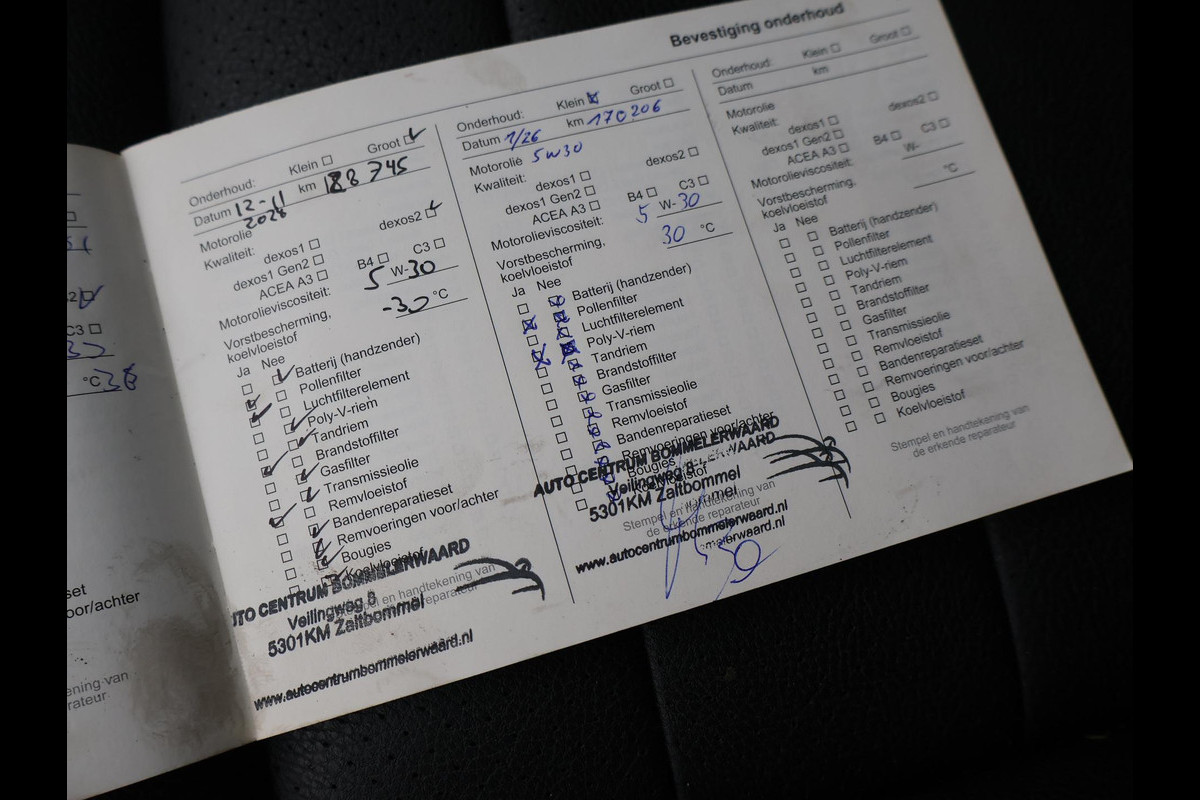 Bevestiging onderhoud
Onderhoud: Klein Groot
Datum 12-11 km 188745
2028
Motorolie
Kwaliteit: dexos1 dexos2
dexos1 Gen2
ACEA A3 B4 C3
Motorolieviscositeit: 5 W-30
Vorstbescherming,
koelvloeistof -30 °C
Ja Nee
Batterij (handzender)
Pollenfilter
Luchtfilterelement
Poly-V-riem
Tandriem
Brandstoffilter
Gasfilter
Transmissieolie
Remvloeistof
Bandenreparatieset
Remvoeringen voor/achter
Bougies
Koelvloeistof
Stempel en handtekening van
de erkende reparateur
AUTO CENTRUM BOMMELERWAARD
Veilingweg 8
5301KM Zaltbommel
www.autocentrumbommelerwaard.nl
Onderhoud: Klein Groot
Datum 1/26 km 170206
Motorolie 5W30
Kwaliteit: dexos1 dexos2
dexos1 Gen2
ACEA A3 B4 C3
Motorolieviscositeit: 5 W-30
Vorstbescherming,
koelvloeistof 30 °C
Ja Nee
Batterij (handzender)
Pollenfilter
Luchtfilterelement
Poly-V-riem
Tandriem
Brandstoffilter
Gasfilter
Transmissieolie
Remvloeistof
Bandenreparatieset
Remvoeringen voor/achter
Bougies
AUTO CENTRUM BOMMELERWAARD
Veilingweg 8
5301KM Zaltbommel
Stempel en handtekening van
de erkende reparateur
www.autocentrumbommelerwaard.nl
Onderhoud: Klein Groot
Datum km
Motorolie
Kwaliteit: dexos1 dexos2
dexos1 Gen2
ACEA A3 B4 C3
Motorolieviscositeit: W-
Vorstbescherming,
koelvloeistof °C
Ja Nee
Batterij (handzender)
Pollenfilter
Luchtfilterelement
Poly-V-riem
Tandriem
Brandstoffilter
Gasfilter
Transmissieolie
Remvloeistof
Bandenreparatieset
Remvoeringen voor/achter
Bougies
Koelvloeistof
Stempel en handtekening van
de erkende reparateur